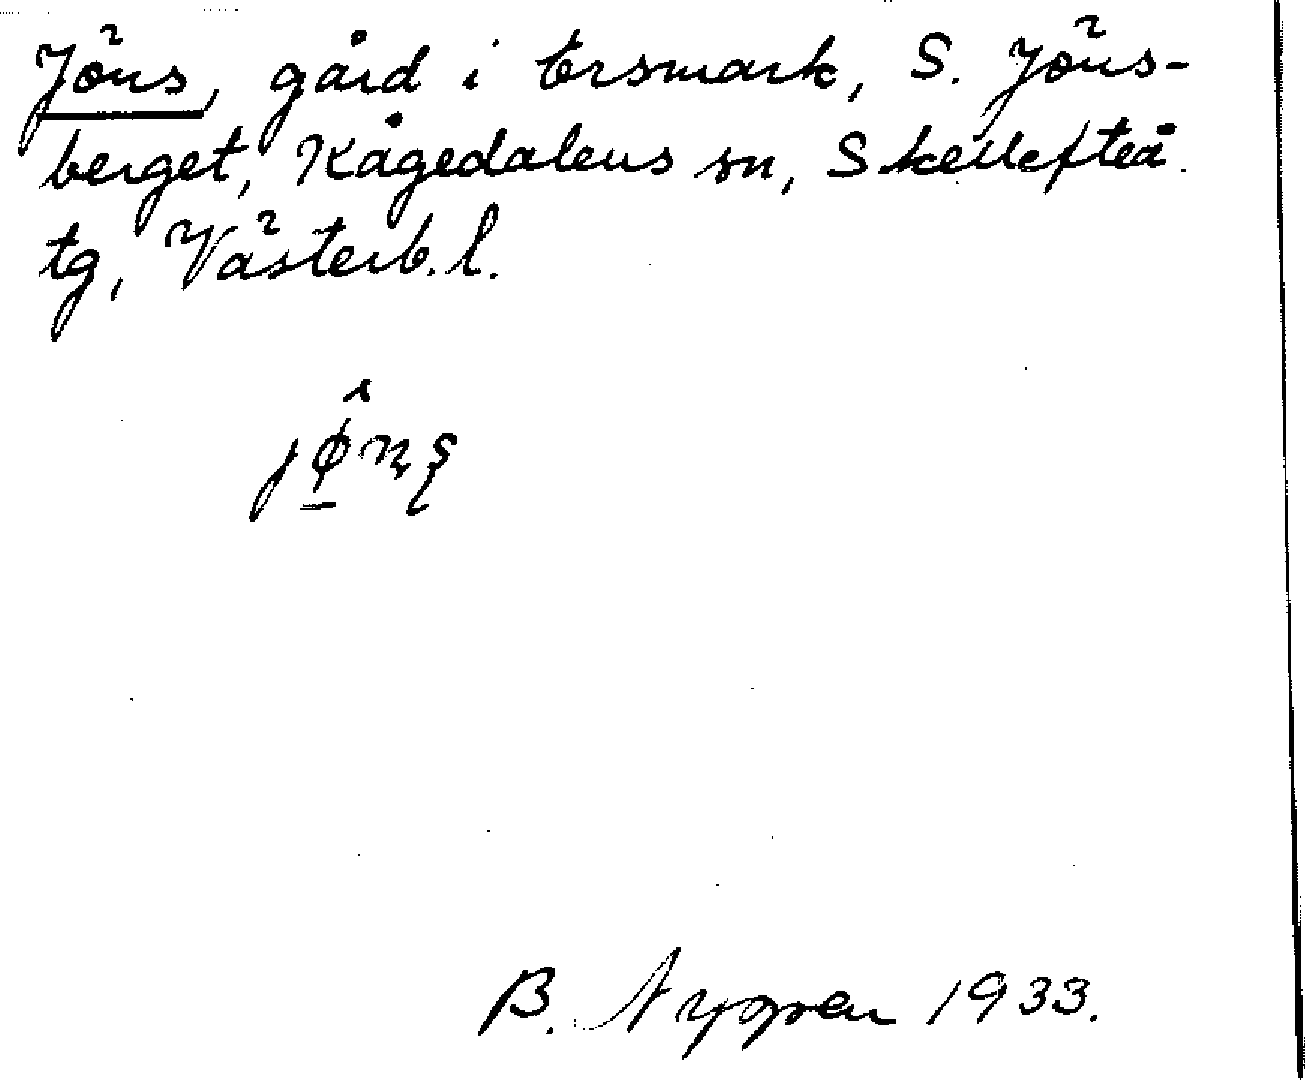 Jöns, gård i Ersmark, S. Jöns-
berget, Kågedalens sn, Skellefteå
tg, Västerb. l.
B. Nygren 1933.